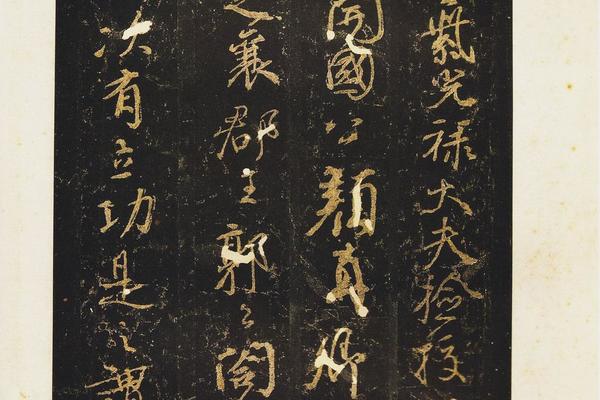 紫光祿大夫檢校
開國公顏真卿
襄郡王郭公閤
次有立功是之謂